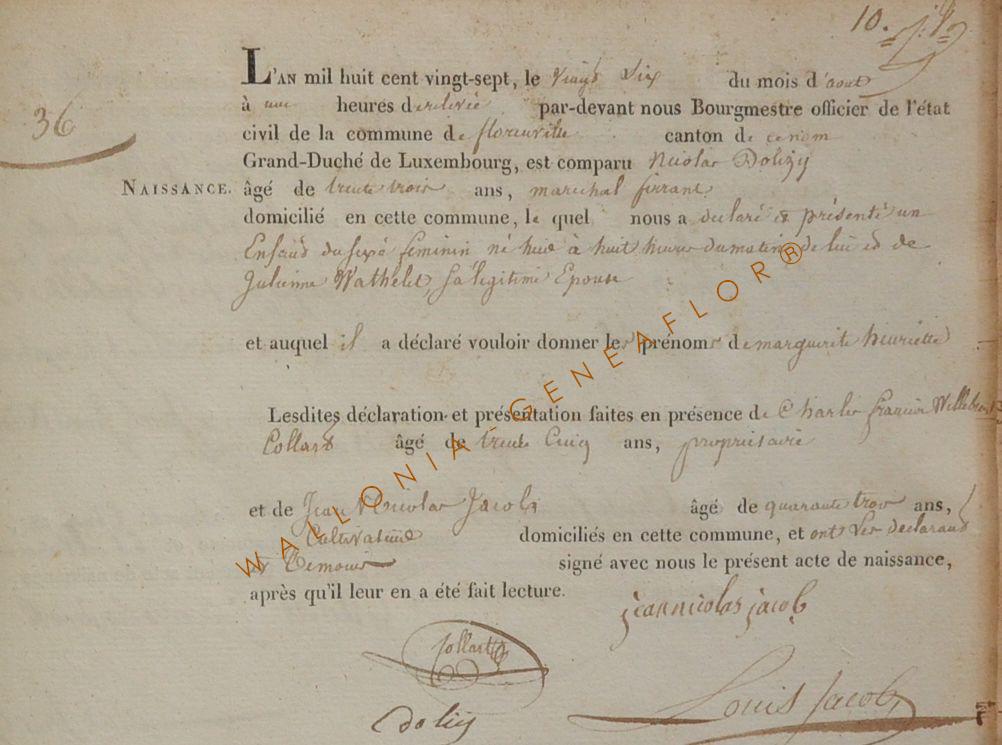 10.
36
L'AN mil huit cent vingt-sept, le Vingt Six du mois d'aout
à une heures de relevée par-devant nous Bourgmestre officier de l'état
civil de la commune de florenville canton de
Grand-Duché de Luxembourg, est comparu Nicolas Dolizy
NAISSANCE. âgé de trente trois ans, marechal ferrant
domicilié en cette commune, le quel nous a declaré et présenté un
Enfant du sexe feminin né à huit heures du matin de lui et de
Julienne Wathelet, sa légitime Epouse
et auquel il a déclaré vouloir donner les prénoms de marguerite henriette
Lesdites déclaration et présentation faites en présence de Charles françois
Collart âgé de trente Cinq ans, propriétaire
et de Jean Nicolas Jacob âgé de quarante trois ans,
Cultivateur domiciliés en cette commune, et ont les declarant
et Temoins signé avec nous le présent acte de naissance,
après qu'il leur en a été fait lecture.
jean nicolas jacob
Collart
dolizy
Louis Jacob
WALLONIA-GENEAFLOR®